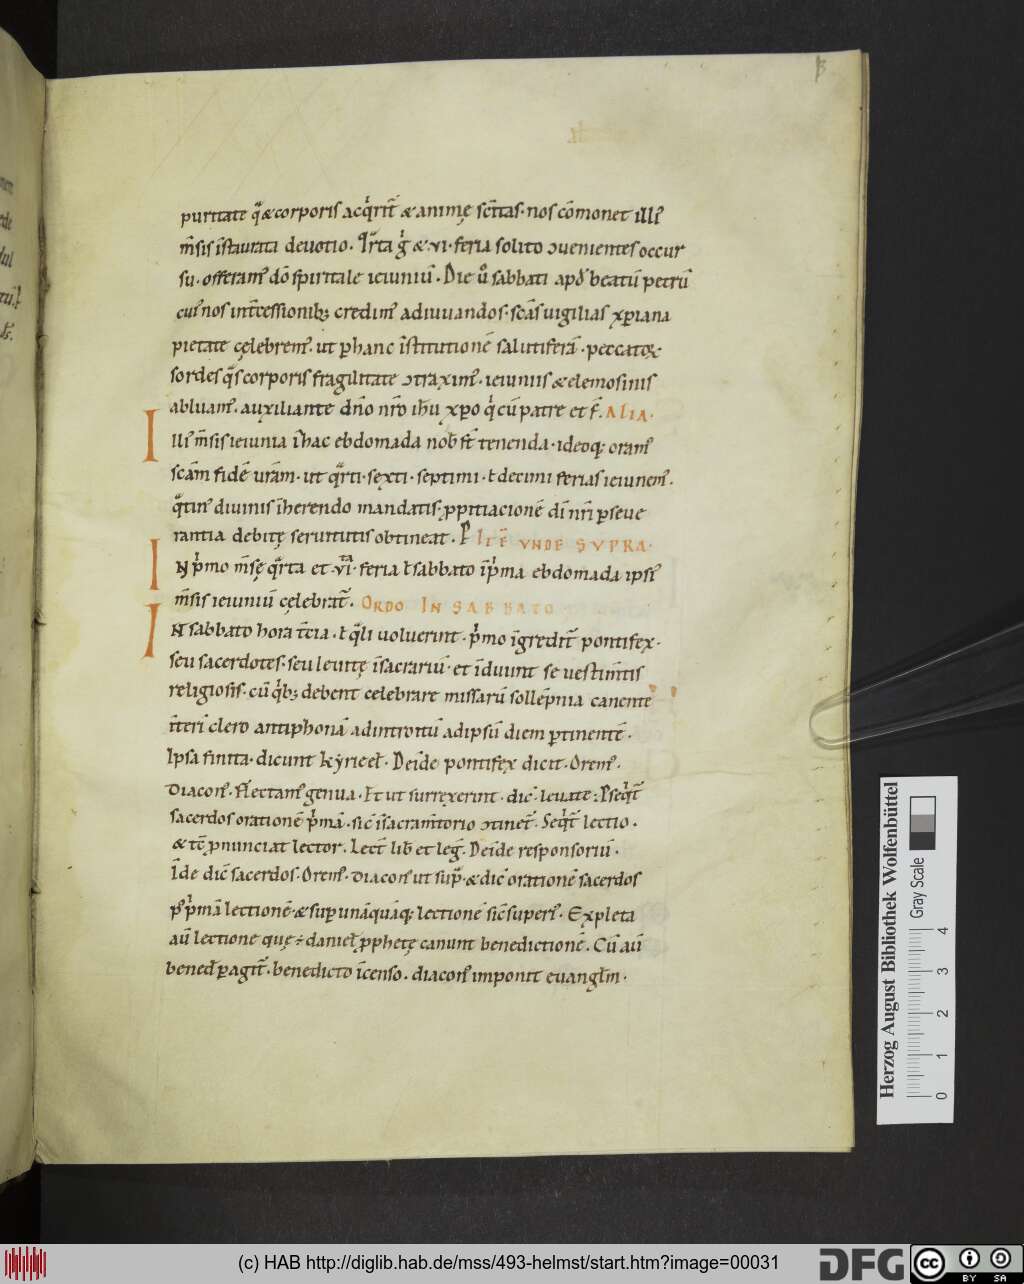 puritate q̃ & corporis acq̓rit̄ & animę sc̄itas. nos cōmonet illī
m̄sis īstaurata deuotio. Qr̄ta g̓ & vi. feria solito ɔuenientes occur
su. offeram̄ dō spiritale ieiuniū. Die ů sabbati apd̄ beatū petrū
cuī nos int̄cessionib; credim̄ adiuuandos. scās uigilias xp̄iana
pietate cęlebrem̄. ut ꝑ hanc īstitutionē salutiferā. peccatoꝝ
sordes q̄s corporis fragilitate ɔtraxim̄. ieiuniis & elemosinis
abluam̄. auxiliante dn̄o nr̄o ih̄u xp̄o q̓ cū patre et f̄. ALIA.
Illī m̄sis ieiunia ī hac ebdomada nob̄ st̄ tenenda. ideoq; oram̄
scām fidē urām. ut qr̄ti. sexti. septimi. ł decimi ferias ieiunem̄.
q̄tin̄ diuinis īherendo mandatis. ꝓpitiacionē dī nr̄i ꝑseue
rantia debitę seruitutis obtineat. P ITĒ VNDE SVPRA.
IN p̓mo m̄sę qr̄ta et vi. feria ł sabbato īp̓ma ebdomada ipsī
m̄sis ieiuniū cęlebrat̄. ORDO IN SABBATO
IN sabbato hora t̄cia. ł q̄li uoluerint. p̓mo īgredit̄ pontifex.
seu sacerdotes. seu leuitę īsacrariū. et īduunt se uestim̄tis
religiosis. cū q̓b; debent celebrare missarū sollēpnia canente
īterī clero antiphonā ad introitū ad ipsū diem ꝑtinentē.
Ipsa finita. dicunt kyrieeł. Deīde pontifex dicit. Orem̄.
Diacon̄. Flectam̄ genua. Et ut surrexerint. dic̄. leuate. Et seq̄t̄
sacerdos orationē p̓mā. sic̄ īsacram̄torio ɔtinet̄. Seq̄t̄ lectio.
& tc̄ ꝓnunciat lector. Lect̄ lib̄ et leḡ. Deīde responsoriū.
Īde dic̄ sacerdos. Orem̄. Diacon̄ ut sup̄. & dic̄ orationē sacerdos
p̄ p̓mā lectionē & suꝑ unāquāq; lectionē sic̄ superī. Expleta
aū lectione quę ÷ danieł ꝓphetę canunt benedictionē. Cū aū
bened̄ ꝑagit̄. benedicto īcenso. diacon̄ imponit euangłm.
Herzog August Bibliothek Wolfenbüttel
Gray Scale
0 1 2 3 4
(c) HAB http://diglib.hab.de/mss/493-helmst/start.htm?image=00031
DFG
cc BY SA